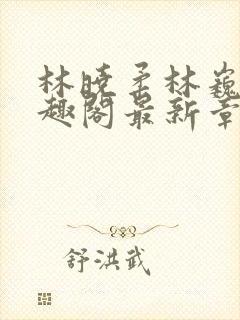 林晓柔林巍
趣阁最新章
舒洪武